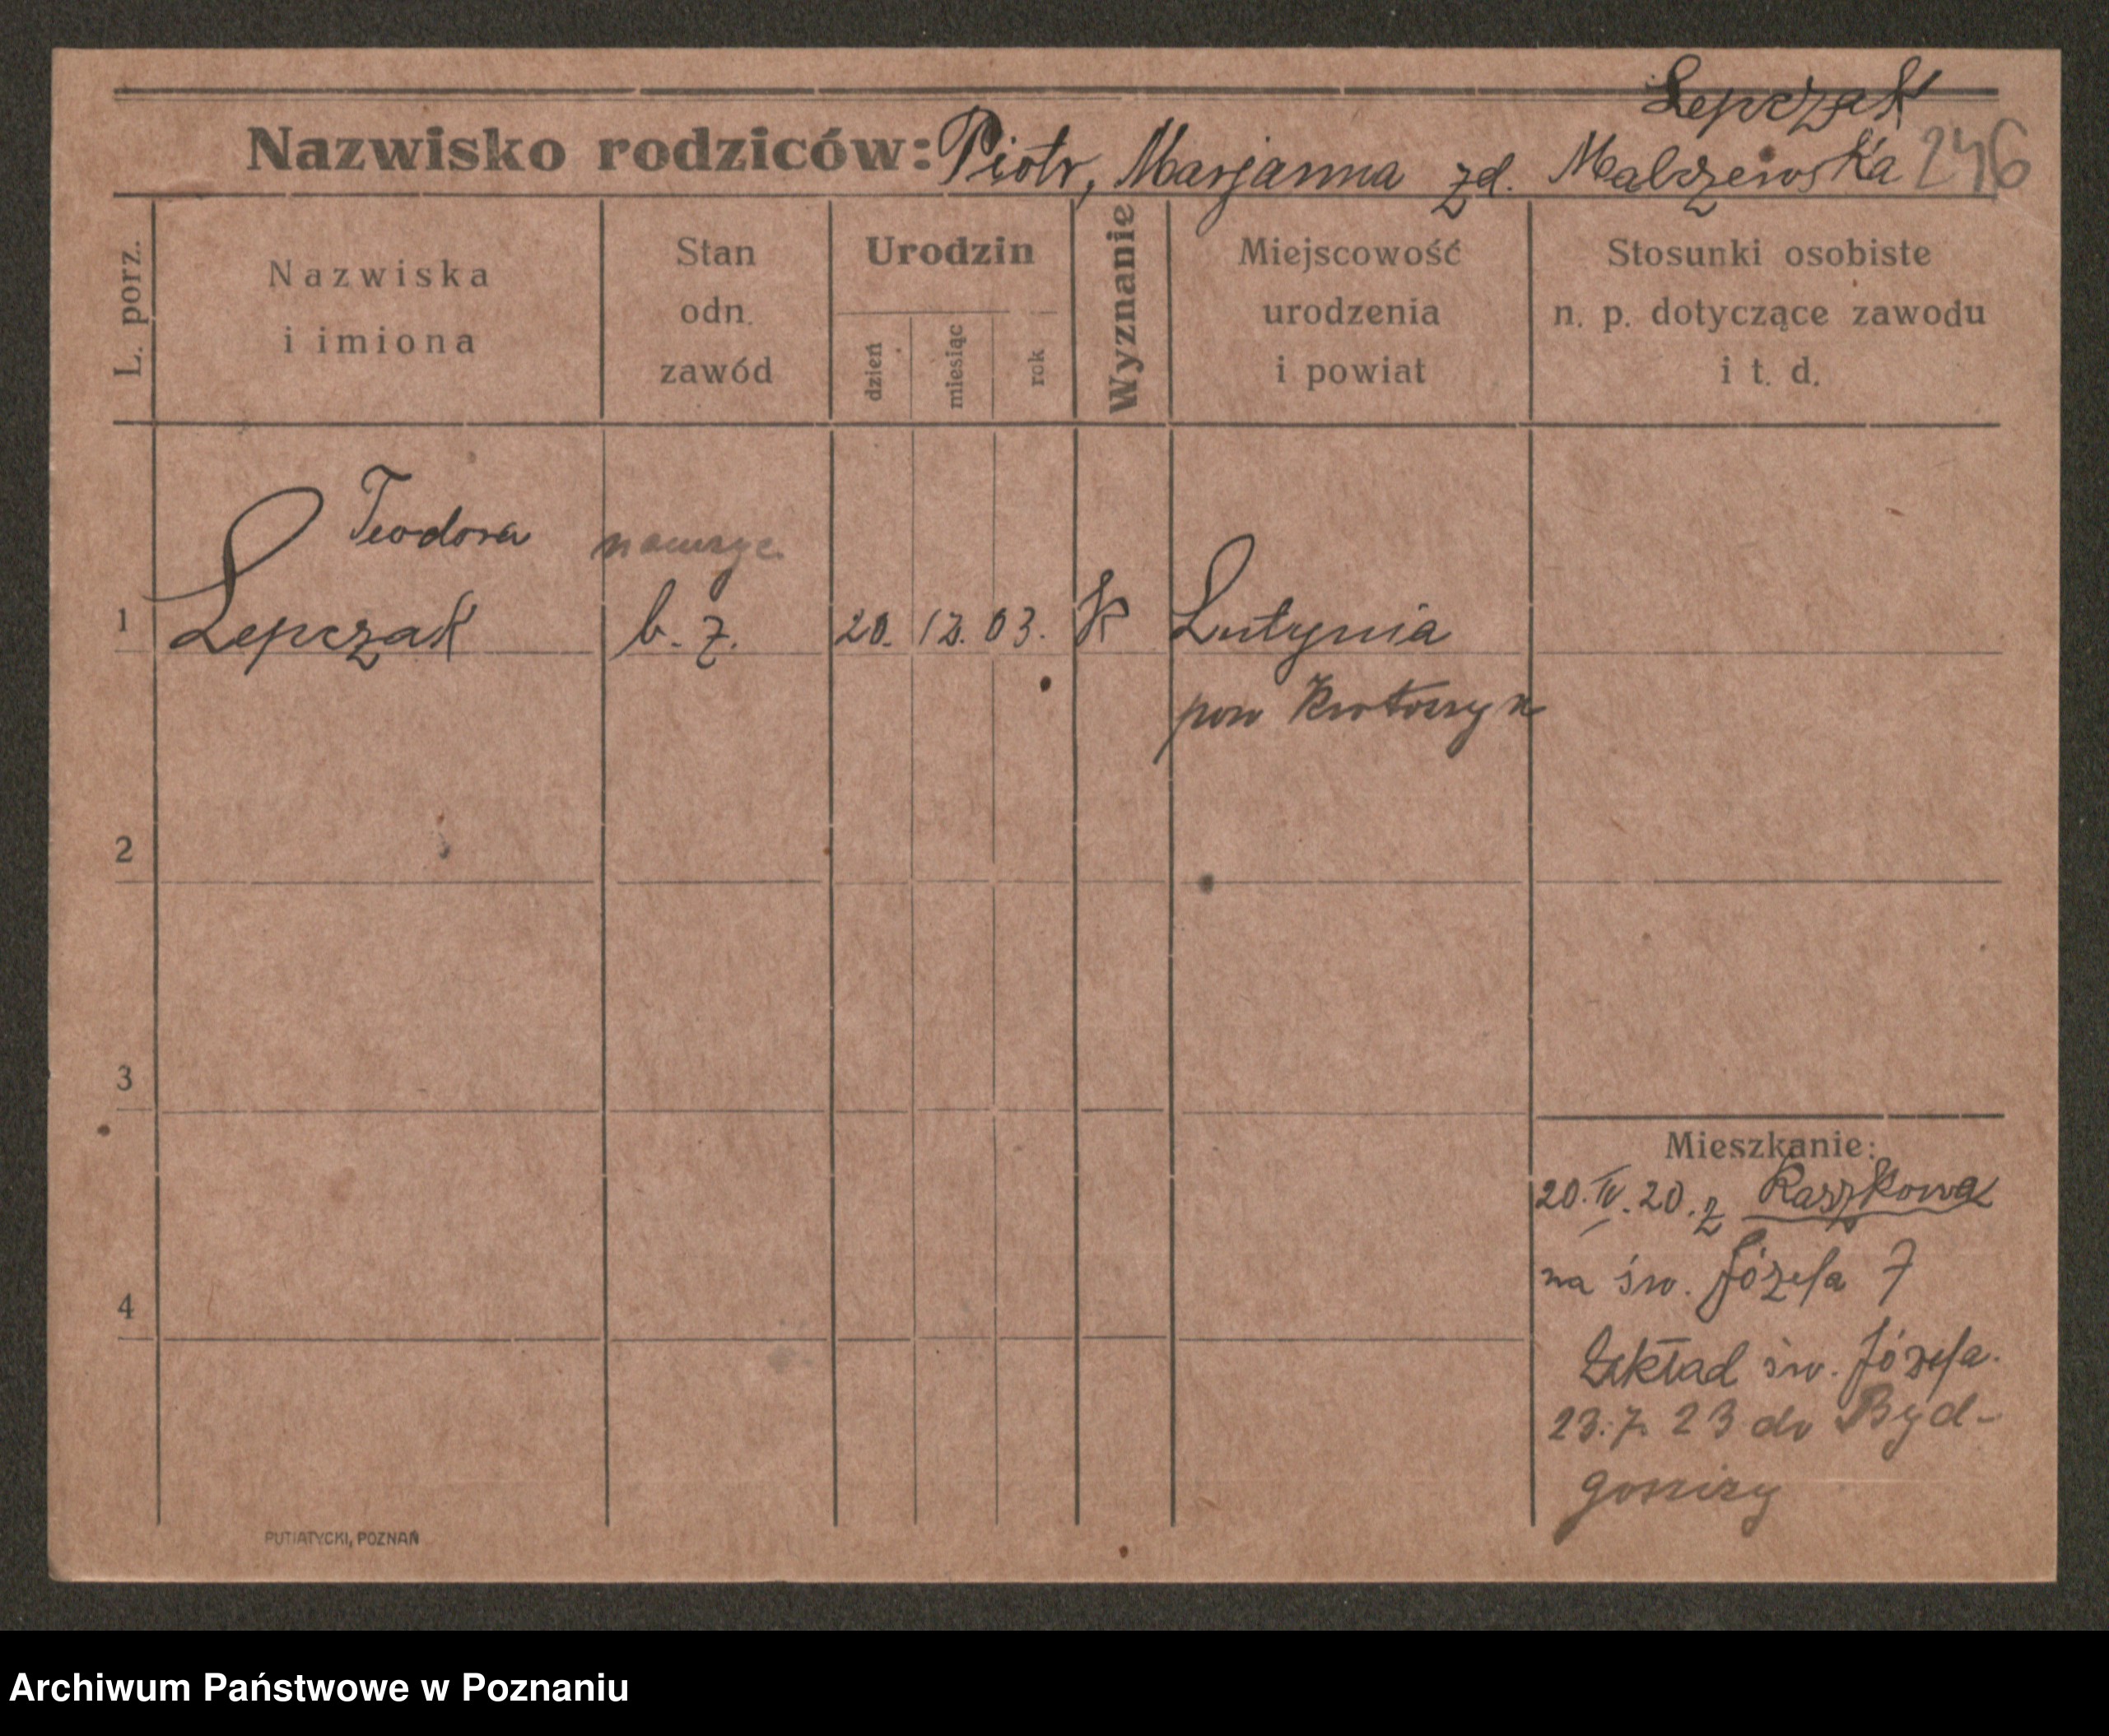 Lepczak
Nazwisko rodziców: Piotr, Marjanna zd. Malczewska 246
L. porz.
Nazwiska
i imiona
Stan
odn.
zawód
Urodzin
dzień
miesiąc
rok
Wyznanie
Miejscowość
urodzenia
i powiat
Stosunki osobiste
n. p. dotyczące zawodu
i t. d.
Teodora
1 Lepczak b. z. 20. 12. 03. K Lutynia
pow Krotoszyn
2
3
4
Mieszkanie:
20. IV. 20. z Raszkowa
na św. Józefa 7
Zakład św. Józefa.
23. 7. 23 do Byd-
goszczy
PUTIATYCKI, POZNAŃ
Archiwum Państwowe w Poznaniu